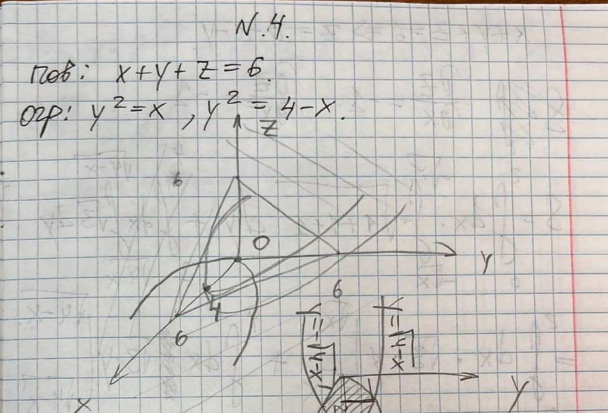 N.4.
пов: x+y+z=6.
огр: y²=x , y²=4-x.
z
6
0
y
6
4
6
x
y=-√4-x
y=√4-x
y